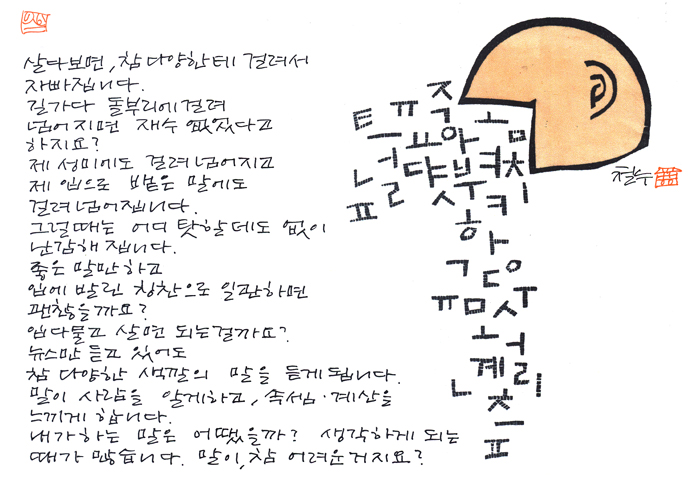 살다보면, 참 다양한데 걸려서
자빠집니다.
길가다 돌부리에 걸려
넘어지면 재수 없었다고
하지요?
제 성미에도 걸려 넘어지고
제 입으로 뱉은 말에도
걸려 넘어집니다.
그럴때는 어디 탓할데도 없이
난감해집니다.
좋은 말만하고
입에 발린 칭찬으로 일관하면
괜찮을까요?
입다물고 살면 되는걸까요?
뉴스만 듣고 있어도
참 다양한 색깔의 말을 듣게됩니다.
말이 사람을 알게하고, 속셈·계산을
느끼게 합니다.
내가하는 말은 어땠을까? 생각하게 되는
때가 많습니다. 말이, 참 어려운거지요?
철수